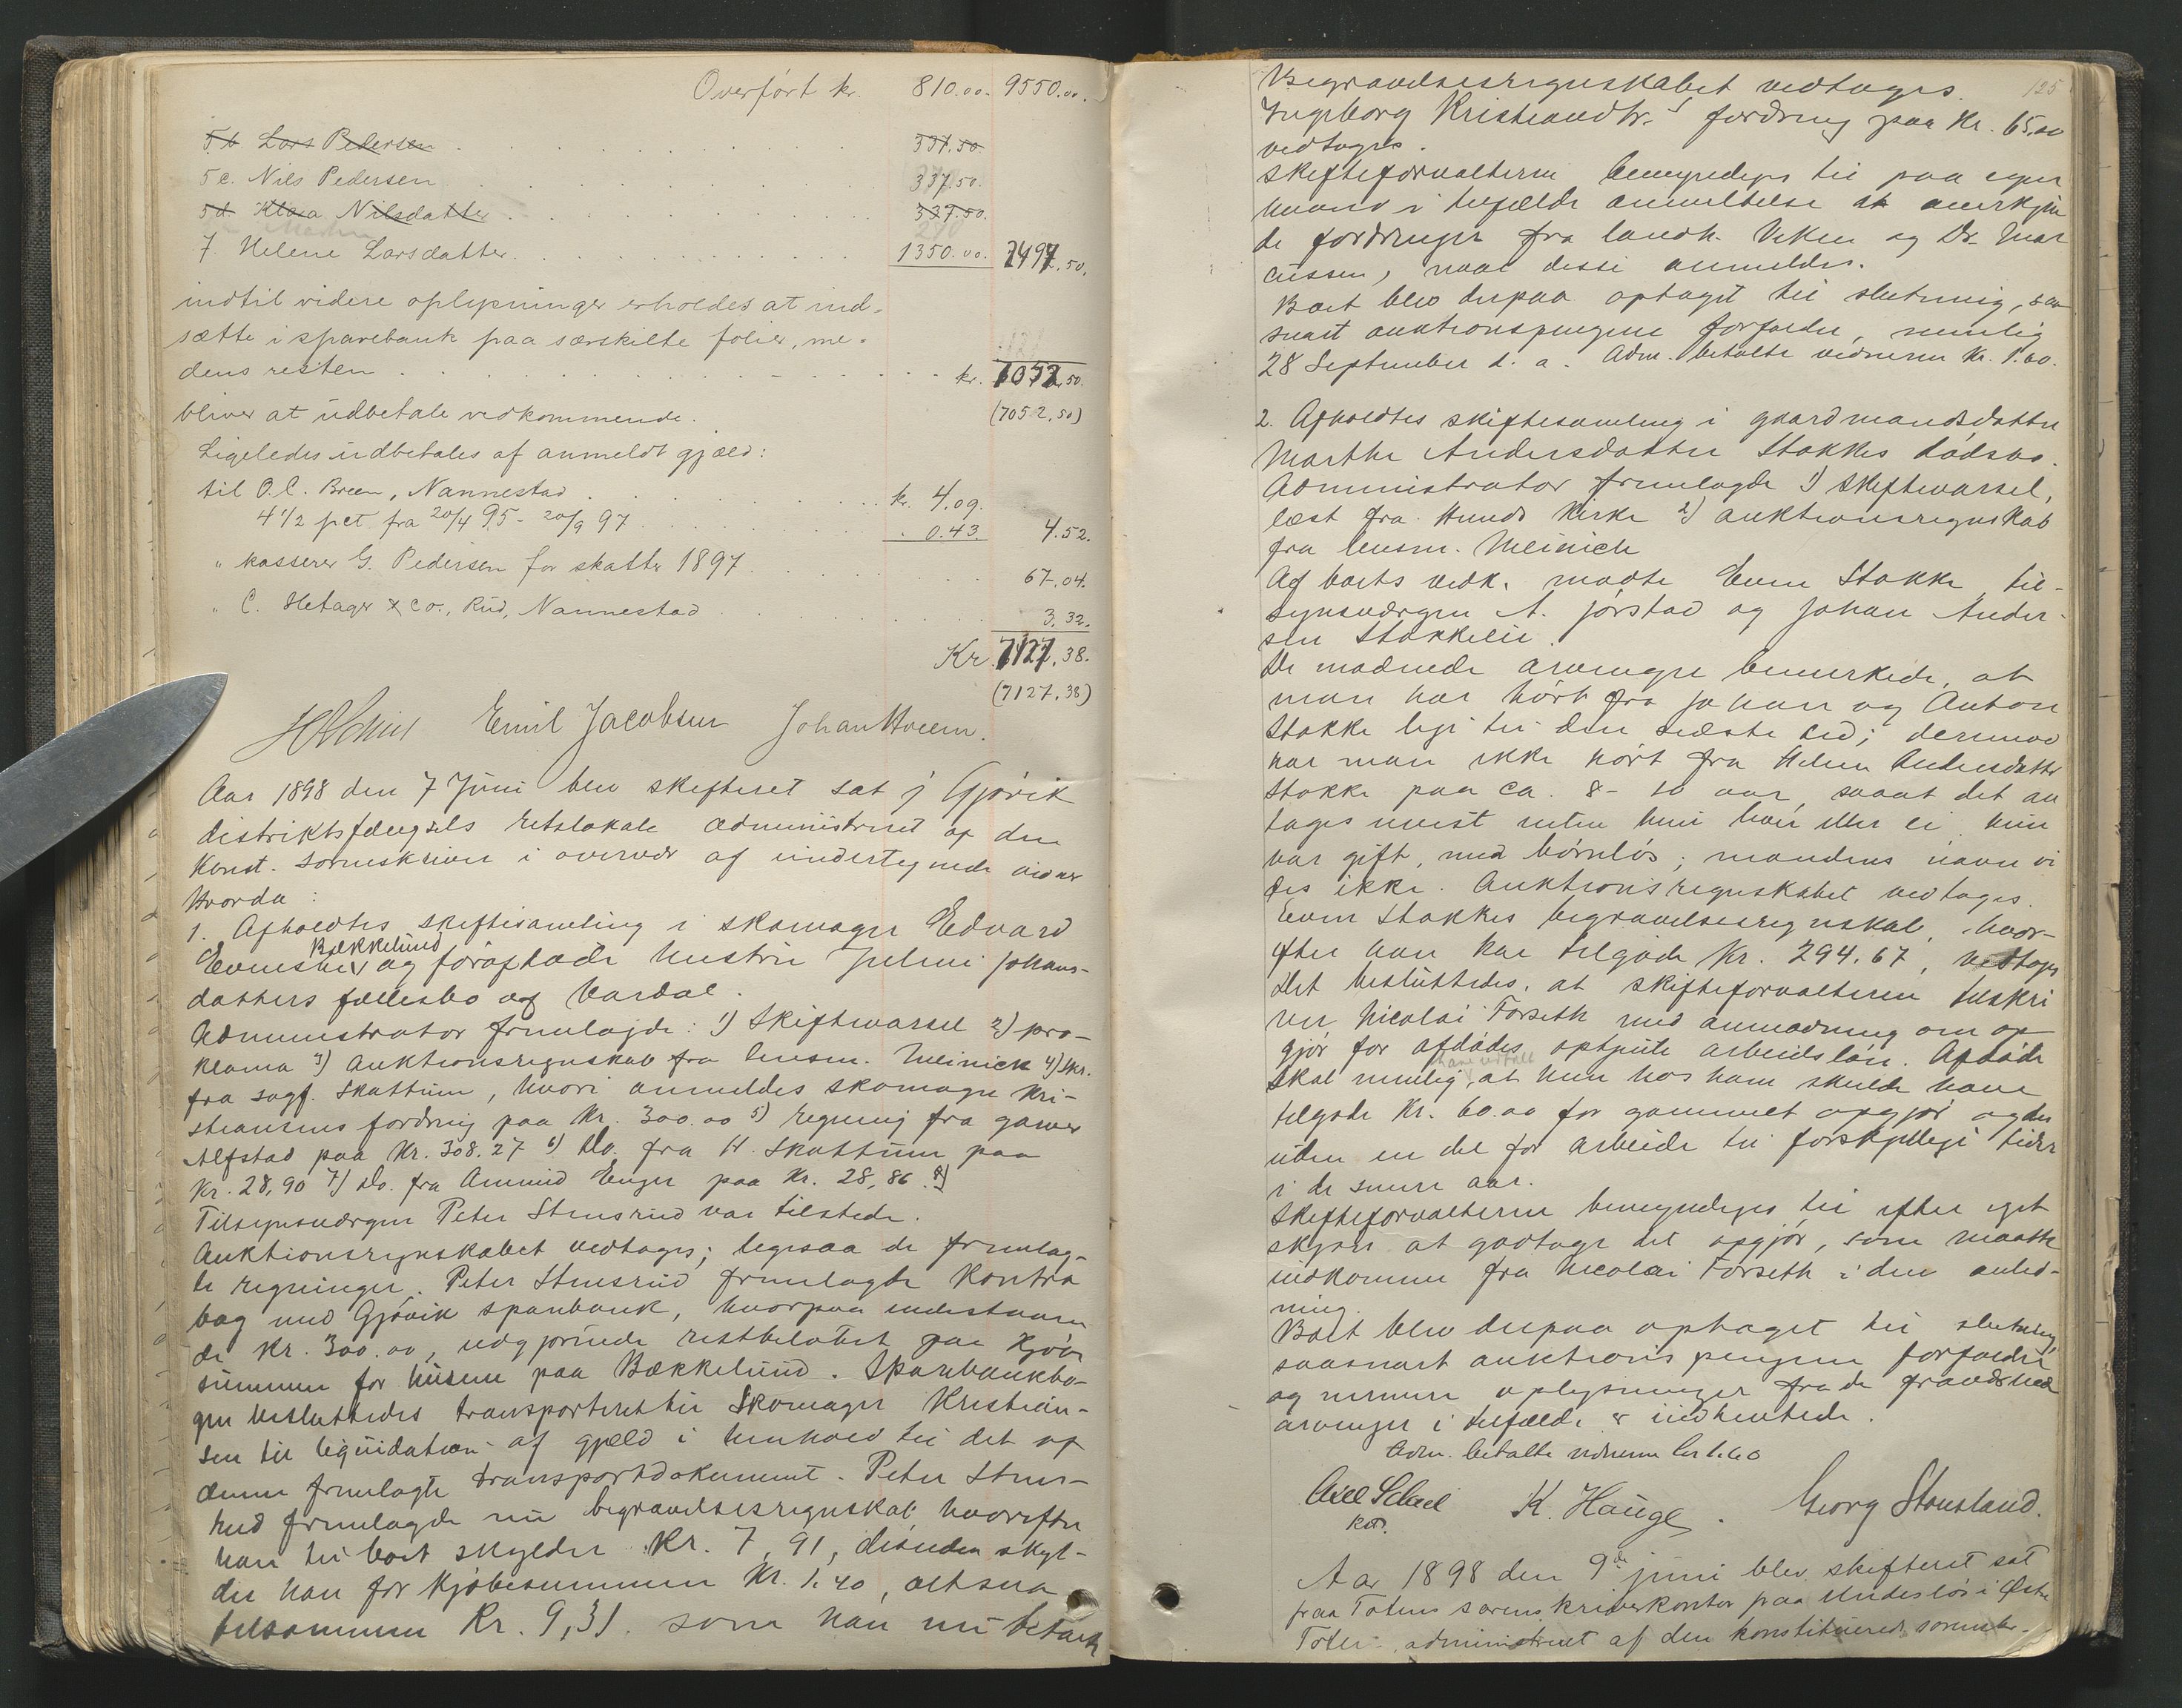 Overført kr. 810.00. 9550.00.
5b Lars Pedersen 337.50.
5c. Nils Pedersen 337.50.
5d Klara Nilsdatter 337.50.
7. Helene Larsdatter. 1350.00. 2497.50.
indtil videre oplysninger erholdes at ind-
sætte i sparebank paa særskilte folier, me-
dens resten kr. 7052.50.
bliver at udbetale vedkommende. (7052,50)
Ligeledes udbetales af anmeldt gjæld:
til O. C. Breen, Nannestad kr. 4.09.
4 1/2 pct fra 20/4 95 - 20/9 97 0.43. 4.52.
" kasserer G. Pedersen for skatter 1897 67.04.
" C. Hetager & Co., Rud, Nannestad 3.32.
Kr. 7127.38.
(7127.38)
Emil Jacobsen Johan Hveem.
Aar 1898 den 7 Juni blev skifteret sat i Gjøvik
distriktsfængsels retslokale administreret af den
konst. sorenskriver i overvær af undertegnede vidner
Hvorda:
1. Afholdtes skiftesamling i skomager Edvard
Bækkelund
Evensens og forafdøde hustru Juline Johans-
datters fællesbo af Vardal.
Administrator fremlagde: 1) Skiftevarsel 2) pro-
klama 3) Auktionsregnskab fra lensm. Meinich 4) skr.
fra sagf. Skattum, hvori anmeldes skomager Kri-
stiansens fordring paa Kr. 300.00 5) regning fra garver
Alfstad paa Kr. 308.27 6) Do. fra H. Skattum paa
Kr. 28,90 7) Do. fra Amund Enger paa Kr. 28,86. 8)
Tilsynsværgen Peter Stensrud var tilstede.
Auktionsregnskabet vedtages; ligesaa de fremlag-
te regninger. Peter Stensrud fremlagde Kontra
bog med Gjøvik sparebank, hvorpaa indestaaen
de Kr. 300.00, udgjørende restbeløbet paa Kjøbe
summen for husene paa Bækkelund. Sparebankbo-
gen besluttedes transporteret til Skomager Kristian-
sen til liquidation af gjæld i henhold til det af
denne fremlagte transportdokument. Peter Stens-
rud fremlagde nu begravelsesregnskab, hvorefter
han til boet skylder Kr. 7,91, desuden skyl-
der han for Kjøbesummen Kr. 1.40, altsaa
tilsammen Kr. 9,31. som han nu betalte
125
Begravelsesregnskabet vedtages.
Ingeborg Kristiansdtr.s fordring paa Kr. 65.00
vedtages.
Skifteforvalteren bemyndiges til paa egen
haand i tilfælde anmeldelse at anerkjen
de fordringer fra landh. Viken og Dr. Mar
cussen, naar disse anmeldes.
Boet blev derpaa optaget til slutning, saa
snart auktionspengene forfalder, nemlig
28 September d. a. Adm. betalte vidnerne Kr. 1.60.
2. Afholdtes skiftesamling i gaardmandsdatter
Marthe Andersdatter Stokkes dødsbo.
Administrator fremlagde 1) Skiftevarsel,
læst fra Hunds Kirke 2) auktionsregnskab
fra lensm. Meinich
Af boets vedk. mødte Even Stokke, til-
synsværgen A. Jørstad og Johan Ander-
sen Stokkelie.
De mødende arvinger bemerkede, at
man har hørt fra Johan og Anton
Stokke lige til den sidste tid; derimod
har man ikke hørt fra Helene Andersdatter
Stokke paa ca. 8-10 aar, saaat det an
tages uvist enten hun lever eller ei. hun
var gift, med børnløs; mandens navn vi
des ikke. Auktionsregnskabet vedtages.
Even Stokkes begravelsesregnskab, hvor-
efter han har tilgode Kr. 294.67, vedtages
Det besluttedes, at skifteforvalteren tilskri
ver Nicolai Forseth med anmodning om op
gjør for afdødes optjente arbeidsløn. Afdøde
have udtalt
skal nemlig, at hun hos ham skulde have
tilgode Kr. 60.00 for gammelt opgjør og des
uden en del for arbeide til forskjellige tider
i de senere aar.
Skifteforvalteren bemyndiges til efter eget
skjøn at godtage det opgjør, som maatte
indkomme fra Nicolai Forseth i den anled-
ning.
Boet blev derpaa optaget til slutning,
saasnart auktionspengene forfalder
og nærmere oplysninger fra de fraværende
arvinger i tilfælde er indhentede.
Adm. betalte vidnerne kr 1.60
Axel Scheel K. Hauge. Georg Stousland.
kst.
Aar 1898 den 9de juni blev skifteret sat
paa Totens sorenskriverkontor paa Undeslös i Østre
Toten, administreret af den konstituerede sorenskr-